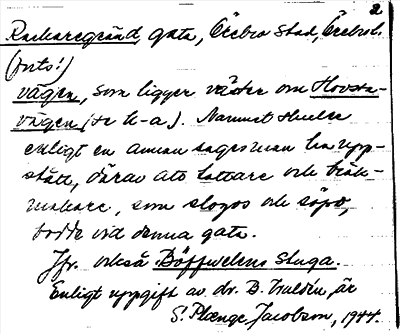 2
Rackaregränd, gata, Örebro stad, Örebro l.
(forts.)
vägen, som ligger väster om Hovsta-
vägen (se h-a). Namnet skulle
enligt en annan sagesman ha upp-
stått, därav att tattare och bråk-
makare, som slogos och söpo,
bodde vid denna gata.
Jfr. också Böffwelens Stuga.
Enligt uppgift av dr. B. är
S. Plænge Jacobson, 1944.